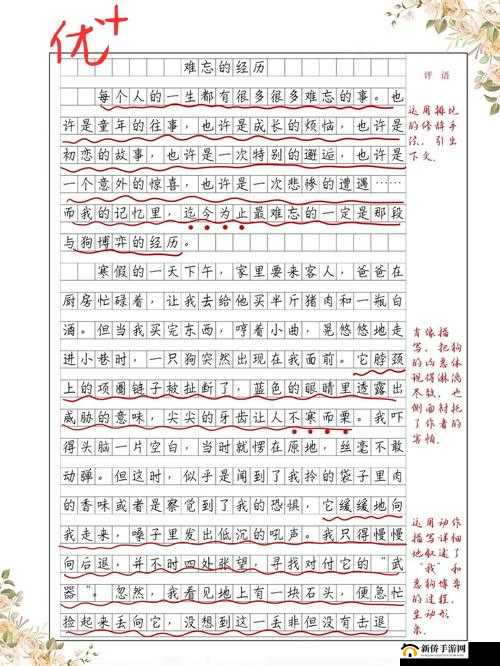 优+
难忘的经历
每个人的一生都有很多很多难忘的事。也
许是童年的往事，也许是成长的烦恼，也许是
初恋的故事，也许是一次特别的邂逅，也许是
一个意外的惊喜，也许是一次悲惨的遭遇……
而我的记忆里，迄今为止最难忘的一定是那段
与狗博弈的经历。
寒假的一天下午，家里要来客人，爸爸在
厨房忙碌着，让我去给他买半斤猪肉和一瓶白
酒。但当我买完东西，哼着小曲，晃悠悠地走
进小巷时，一只狗突然出现在我面前。它脖颈
上的项圈链子被扯断了，蓝色的眼睛里透露出
威胁的意味，尖尖的牙齿让人不寒而栗。我吓
得头脑一片空白，当时就愣在原地，丝毫不敢
动弹。但这时，似乎是闻到了我拎的袋子里肉
的香味或者是察觉到了我的恐惧，它缓缓地向
我走来，嗓子里发出低沉的吼声。我只得慢慢
向后退，并不时四处张望，寻找对付它的“武
器”。忽然，我看见地上有一块石头，便急忙
捡起来丢向它，没想到这一丢非但没有击退
评语
运用排比
的修辞手
法，引出
下文。
肖像描
写，把狗
的凶恶体
现得淋漓
尽致，也
侧面衬托
了作者的
害怕。
运用动作
描写详细
地叙述了
“我”和
恶狗博弈
的过程，
生动形
象。
新侨手游网